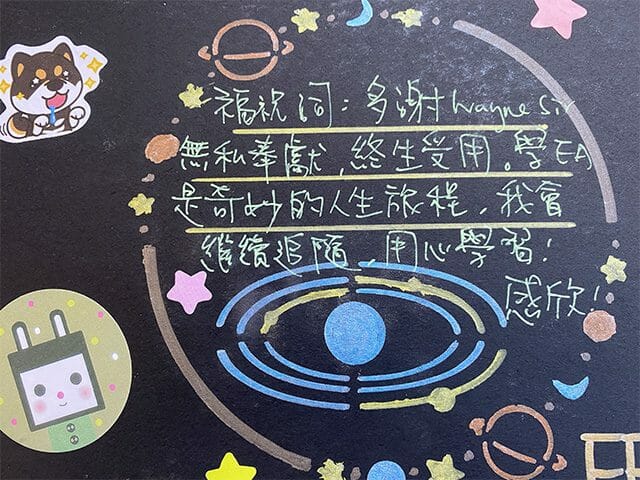 福祝詞：多謝 Wayne Sir
無私奉獻，終生受用。學EA
是奇妙的人生旅程，我會
繼續追隨，用心學習！
感欣！